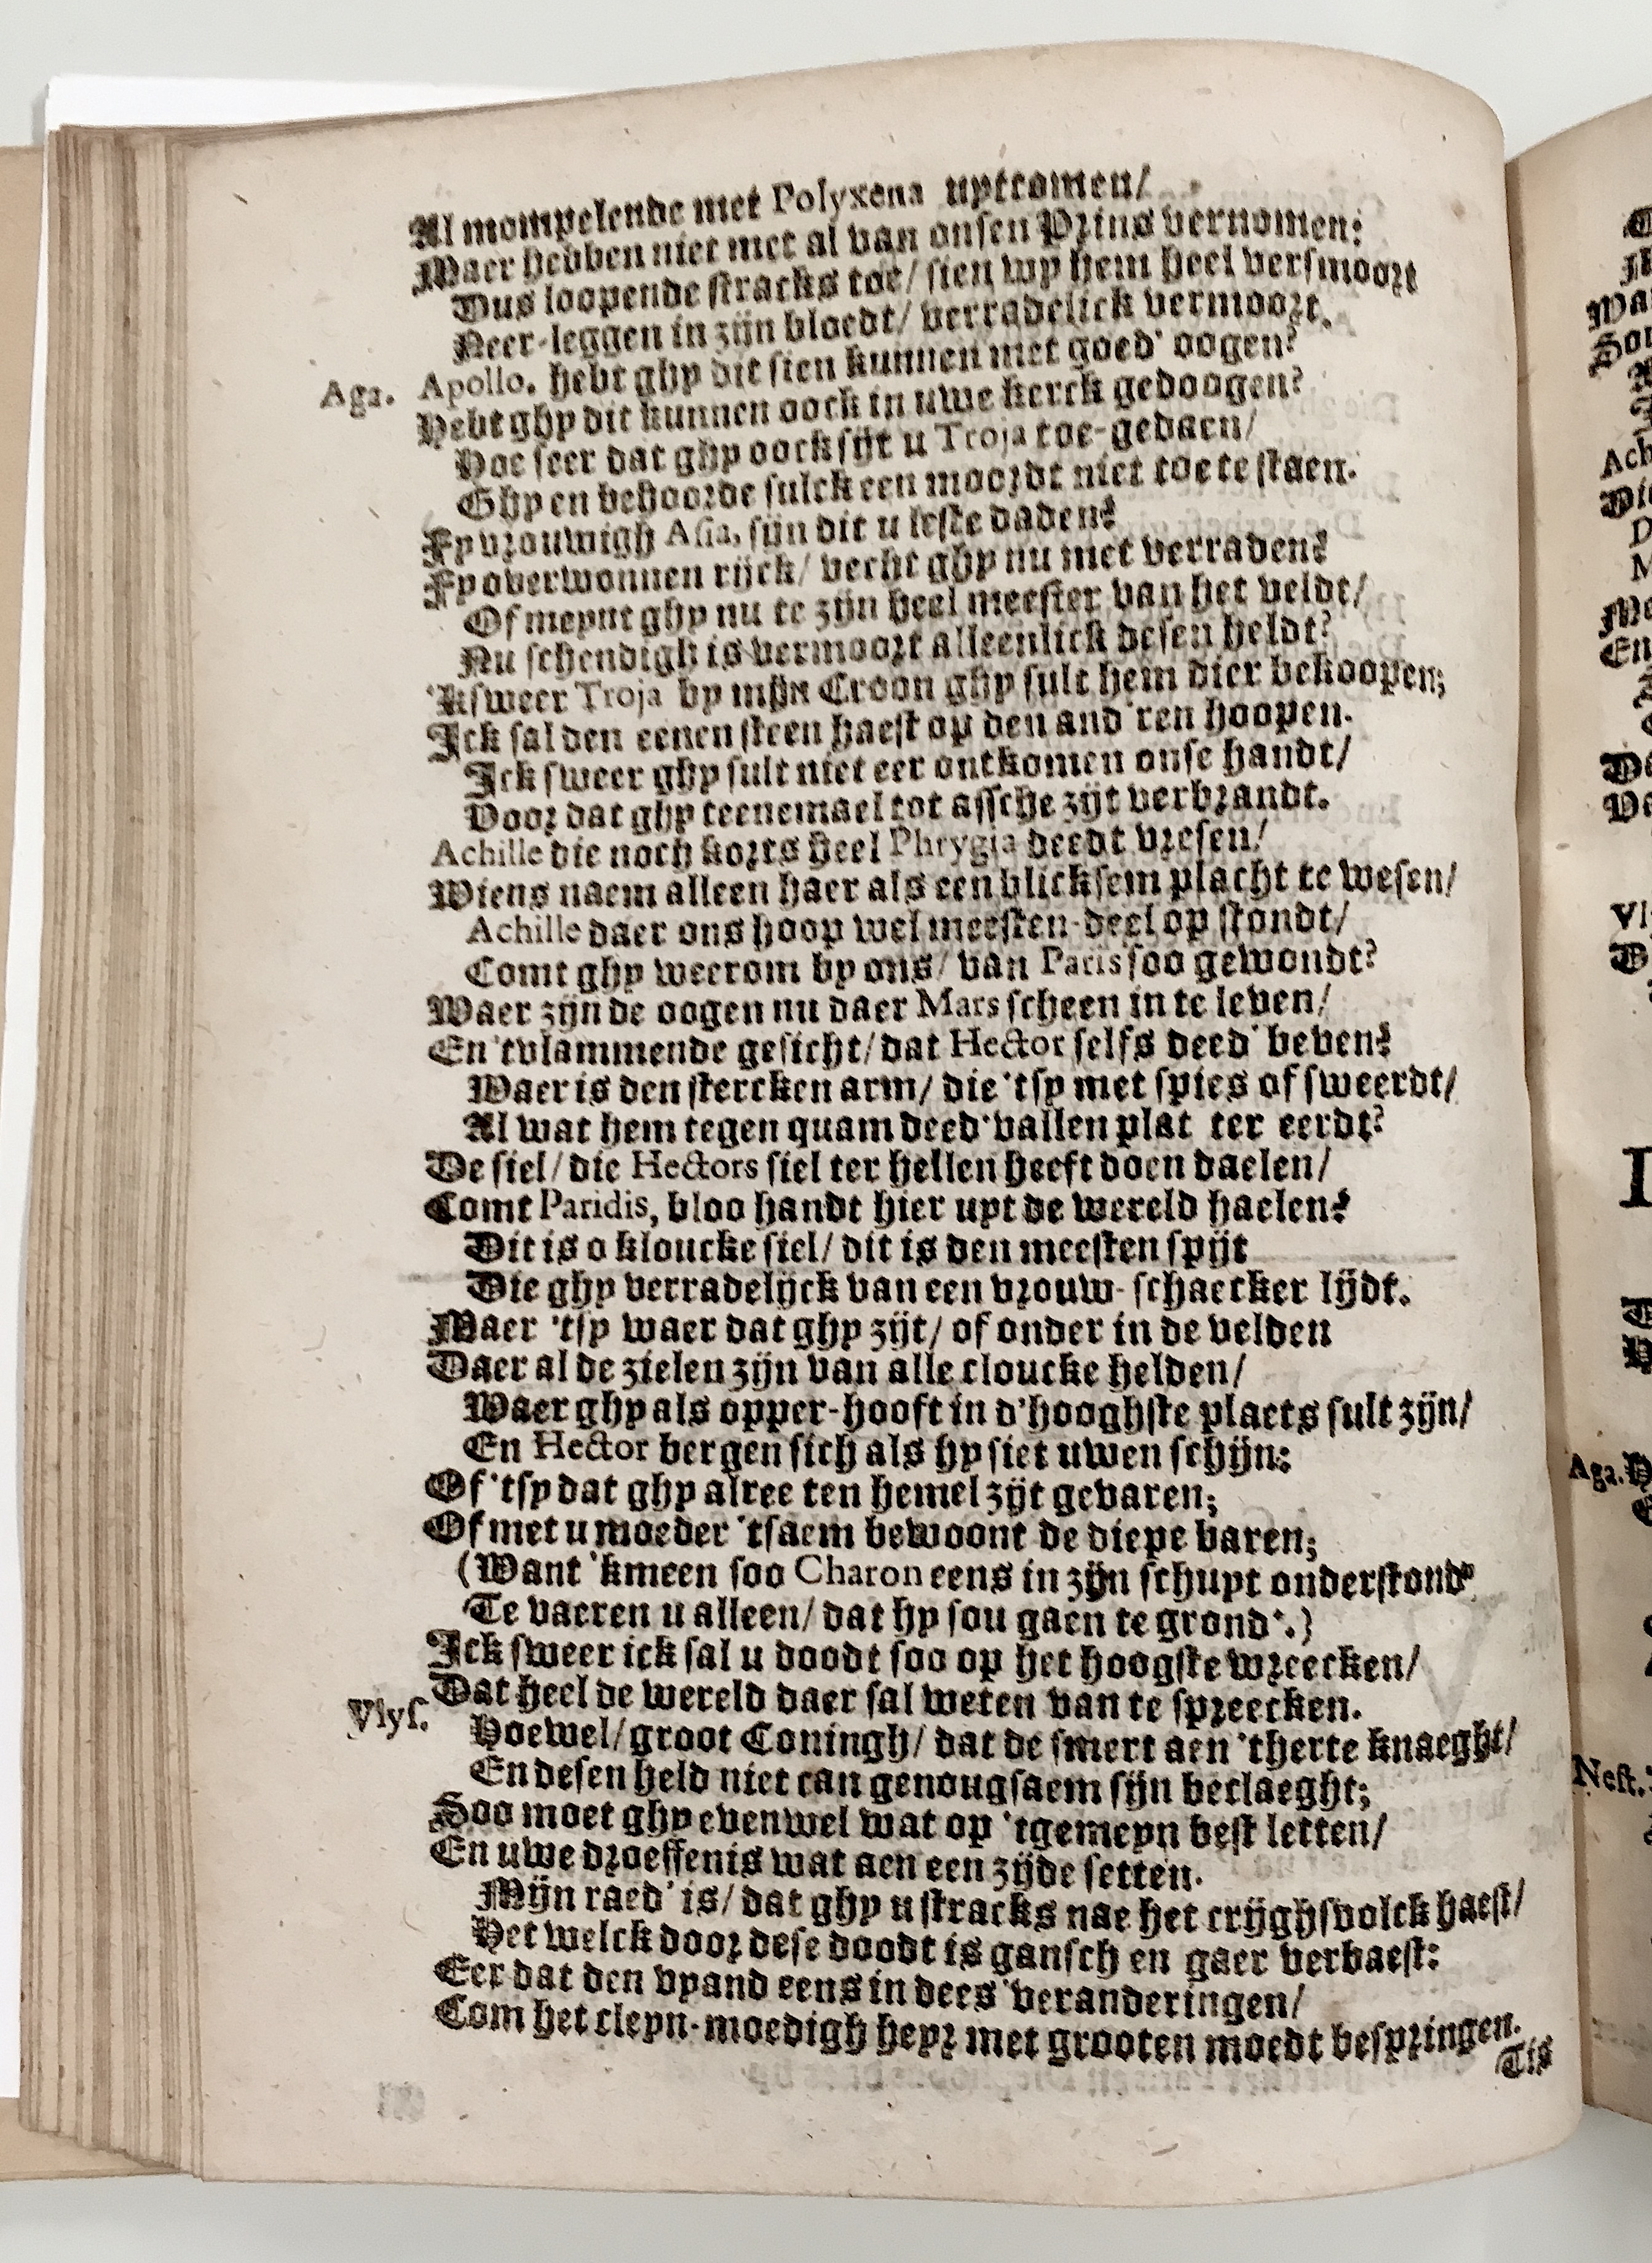 Al mompelende met Polyxena uytcomen/
Maer hebben niet met al van onsen Prins vernomen:
Dus loopende stracks toe/ sien wy hem heel versmoort
Neer-leggen in zijn bloedt/ verradelick vermoort.
Aga. Apollo. hebt ghy dit sien kunnen met goed' oogen?
Hebt ghy dit kunnen oock in uwe kerck gedoogen?
Hoe seer dat ghy oock sijt u Troja toe-gedaen/
Ghy en behoorde sulck een moordt niet toe te staen.
Fy vrouwigh Asia, sijn dit u leste daden?
Fy overwonnen rijck/ vecht ghy nu met verraden?
Of meynt ghy nu te zijn heel meester van het veldt/
Nu schendigh is vermoort alleenlick desen heldt?
'Ksweer Troja by mijn Croon ghy sult hem dier bekoopen;
Ick sal den eenen steen haest op den and'ren hoopen.
Ick sweer ghy sult niet eer ontkomen onse handt/
Voor dat ghy teenemael tot assche zijt verbrandt.
Achille die noch korts heel Phrygia deedt vresen/
Wiens naem alleen haer als een blicksem placht te wesen/
Achille daer ons hoop wel meesten-deel op stondt/
Comt ghy weerom by ons/ van Paris soo gewondt?
Waer zijn de oogen nu daer Mars scheen in te leven/
En 'tvlammende gesicht/ dat Hector selfs deed' beven?
Waer is den stercken arm/ die 'tsy met spies of sweerdt/
Al wat hem tegen quam deed' vallen plat ter eerdt?
De siel/ die Hectors siel ter hellen heeft doen daelen/
Comt Paridis, bloo handt hier uyt de wereld haelen?
Dit is o kloucke siel/ dit is den meesten spijt
Die ghy verradelijck van een vrouw-schaecker lijdt.
Maer 'tsy waer dat ghy zijt/ of onder in de velden
Daer al de zielen zijn van alle cloucke helden/
Waer ghy als opper-hooft in d'hooghste plaets sult zijn/
En Hector bergen sich als hy siet uwen schijn:
Of 'tsy dat ghy alree ten hemel zijt gevaren;
Of met u moeder 'tsaem bewoont de diepe baren;
(Want 'kmeen soo Charon eens in zijn schuyt onderstond'
Te vaeren u alleen/ dat hy sou gaen te grond'.)
Ick sweer ick sal u doodt soo op het hoogste wreecken/
Dat heel de wereld daer sal weten van te spreecken.
Vlys. Hoewel/ groot Coningh/ dat de smert aen 'therte knaeght/
En desen held niet can genougsaem sijn beclaeght;
Soo moet ghy evenwel wat op 'tgemeyn best letten/
En uwe droeffenis wat aen een zijde setten.
Mijn raed' is/ dat ghy u stracks nae het crijghsvolck haest/
Het welck door dese doodt is gansch en gaer verbaest:
Eer dat den vyand eens in dees' veranderingen/
Com het cleyn-moedigh heyr met grooten moedt bespringen.
Tis
Aga.
Nest.